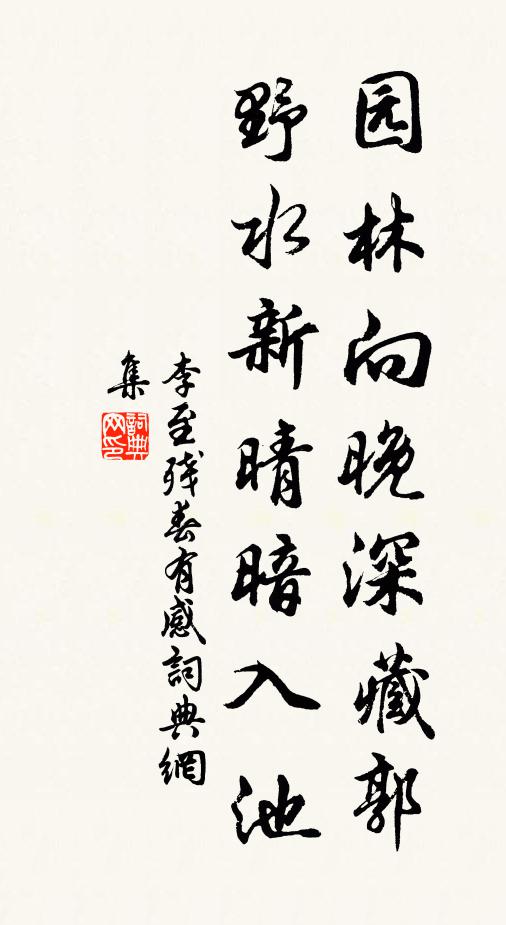 园林向晚深藏郭
野水新晴暗入池
李至残春有感詞典網
集
詞典
网印